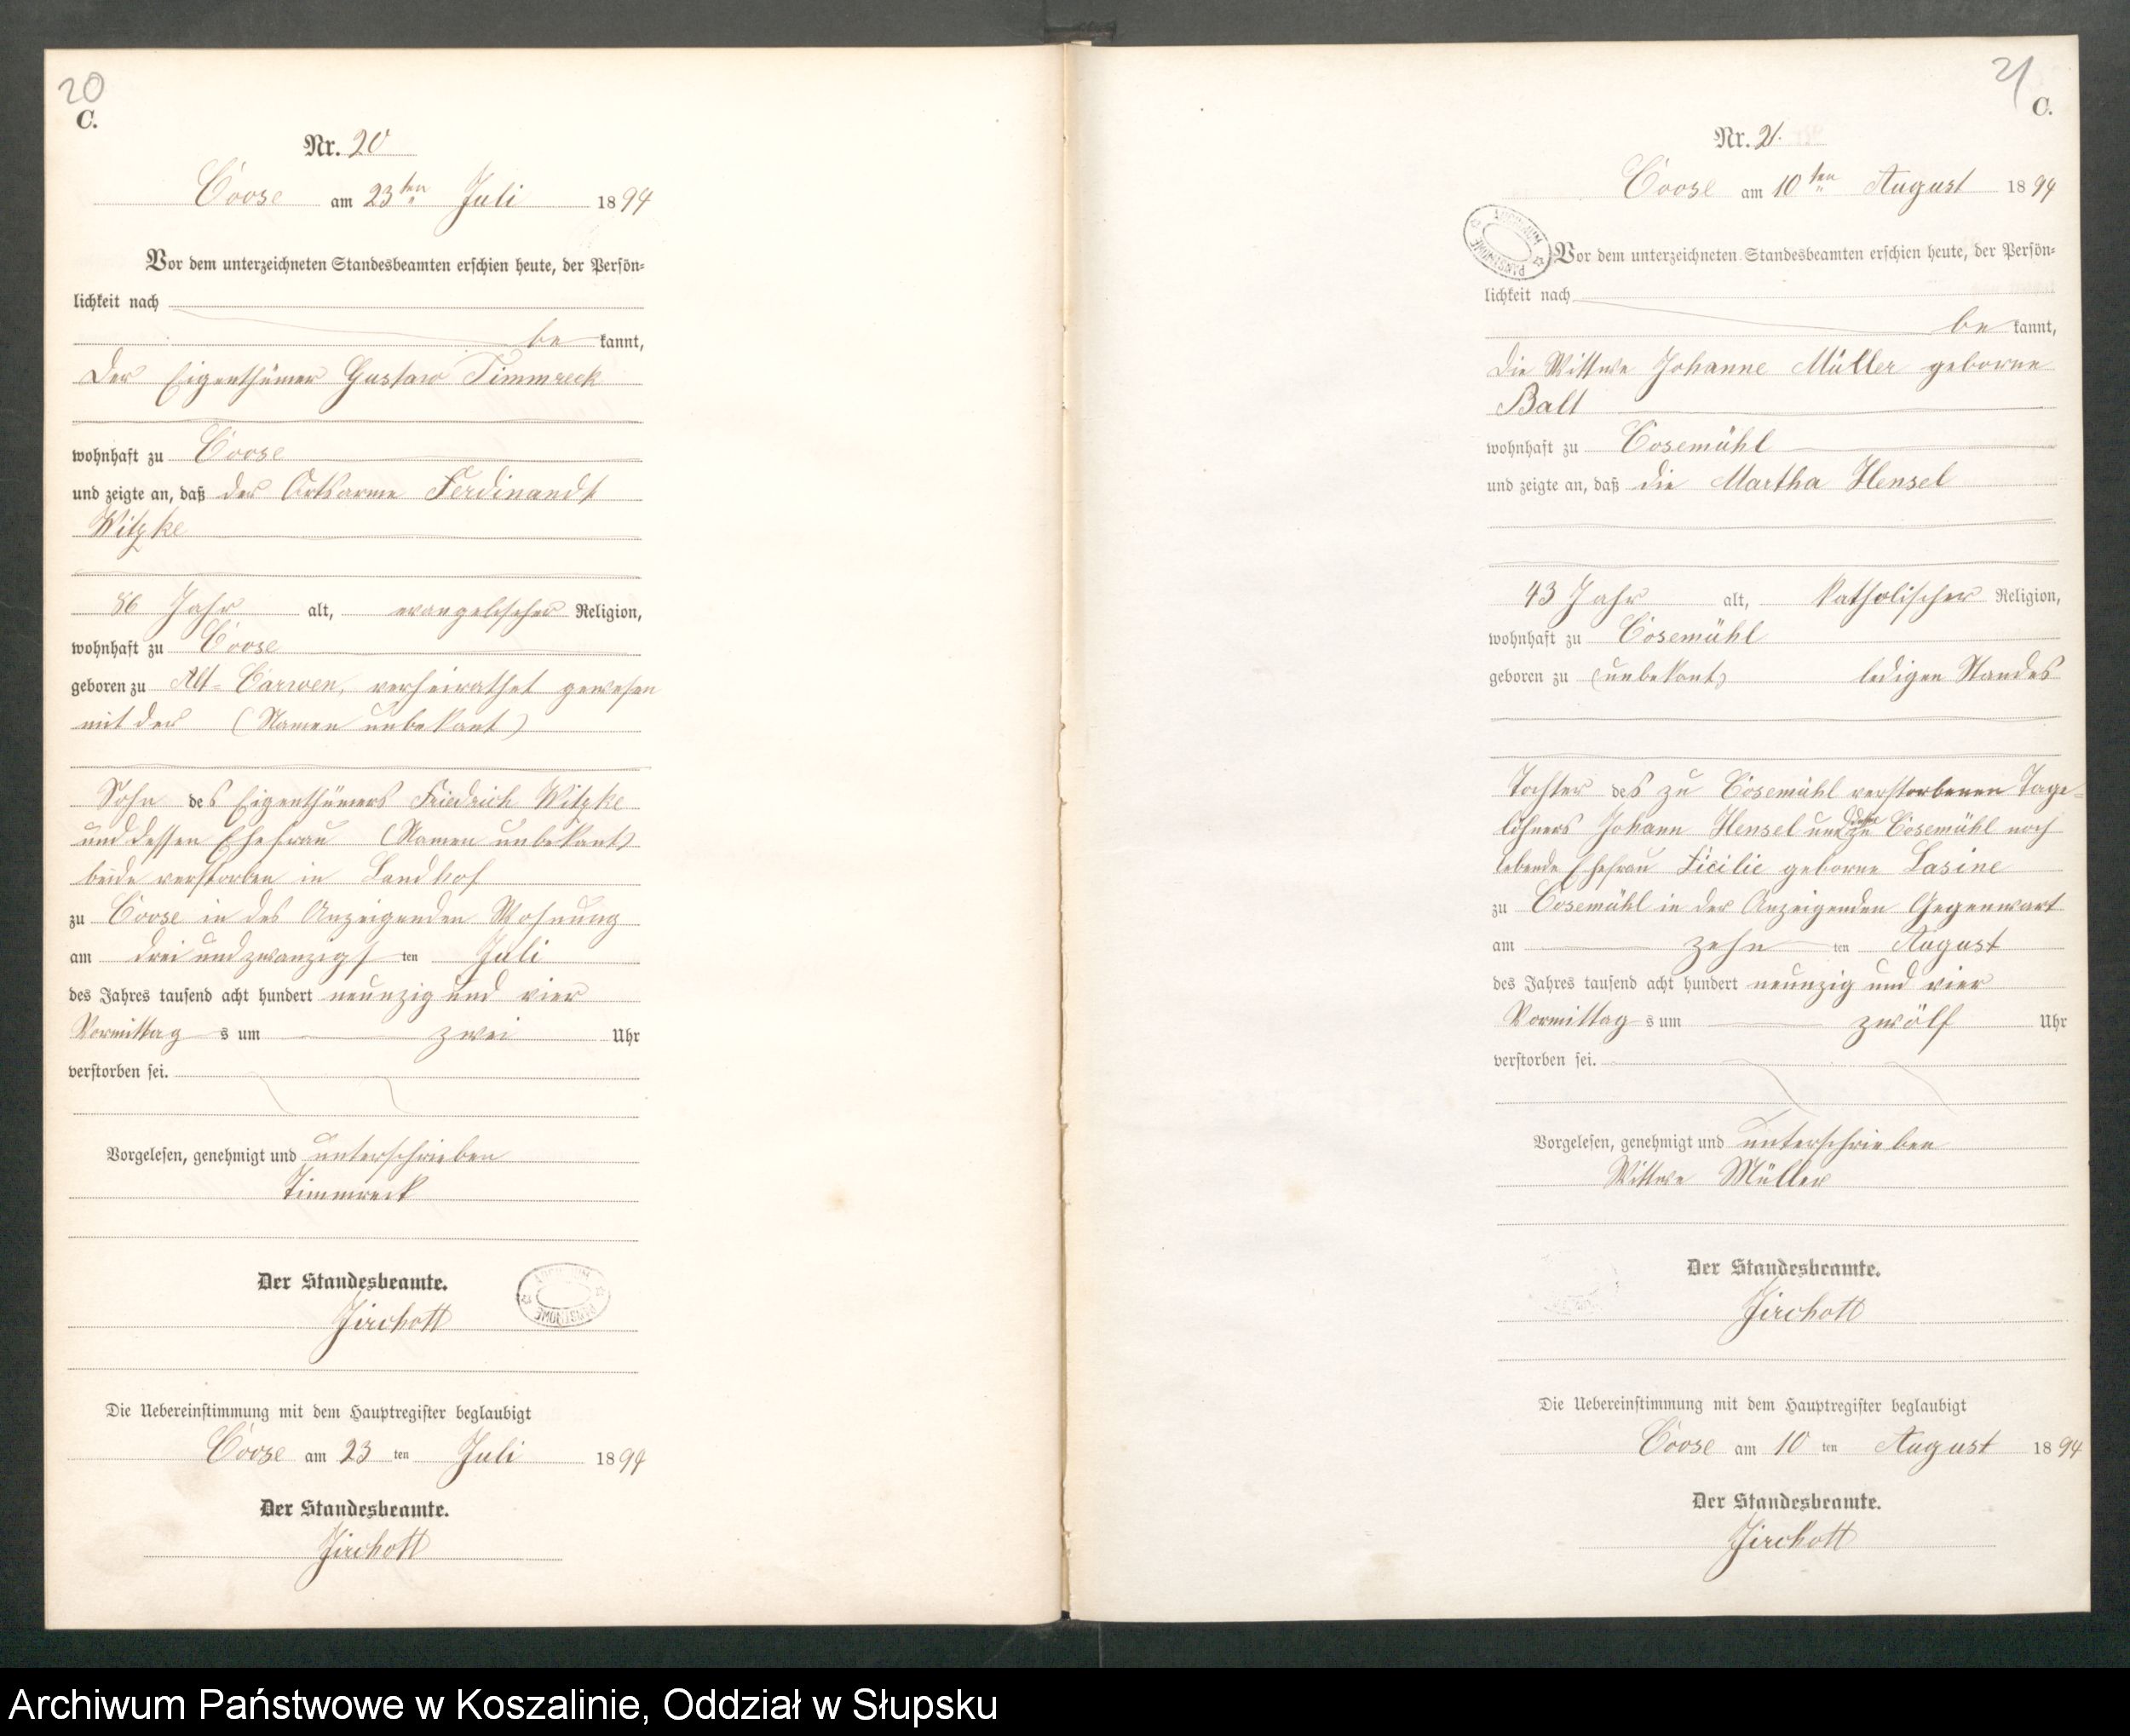 20
C.
Nr. 20
Coose am 23ten Juli 1894
Vor dem unterzeichneten Standesbeamten erschien heute, der Persön-
lichkeit nach
be kannt,
der Eigenthümer Gustaw Timmreck
wohnhaft zu Coose
und zeigte an, daß der Ortsarme Ferdinandt
Witzke
86 Jahr alt, evangelischer Religion,
wohnhaft zu Coose
geboren zu Alt-Carwen, verheirathet gewesen
mit der (Namen unbekant)
Sohn des Eigenthümers Friedrich Witzke
und dessen Ehefrau (Namen unbekant)
beide verstorben in Landhof
zu Coose in des Anzeigenden Wohnung
am drei und zwanzigs ten Juli
des Jahres tausend acht hundert neunzig und vier
Vormittag s um zwei Uhr
verstorben sei.
Vorgelesen, genehmigt und unterschrieben
Timmreck
Der Standesbeamte.
Jirchott
Die Uebereinstimmung mit dem Hauptregister beglaubigt
Coose am 23 ten Juli 1894
Der Standesbeamte.
Jirchott
21
C.
Nr. 21.
Coose am 10ten August 1894
ARCHIWUM PAŃSTWOWE
Vor dem unterzeichneten Standesbeamten erschien heute, der Persön-
lichkeit nach
be kannt,
die Wittwe Johanne Müller geborne
Balt
wohnhaft zu Cosemühl
und zeigte an, daß die Martha Hensel
43 Jahr alt, katholischer Religion,
wohnhaft zu Cosemühl
geboren zu (unbekant) ledigen Standes
Tochter des zu Cosemühl verstorbenen Tage-
löhners Johann Hensel und zu Cosemühl noch
lebende Ehefrau Ficilie geborne Lasine
zu Cosemühl in der Anzeigenden Gegenwart
am zehn ten August
des Jahres tausend acht hundert neunzig und vier
Vormittag s um zwölf Uhr
verstorben sei.
Vorgelesen, genehmigt und unterschrieben
Wittwe Müller
Der Standesbeamte.
Jirchott
Die Uebereinstimmung mit dem Hauptregister beglaubigt
Coose am 10 ten August 1894
Der Standesbeamte.
Jirchott
Archiwum Państwowe w Koszalinie, Oddział w Słupsku